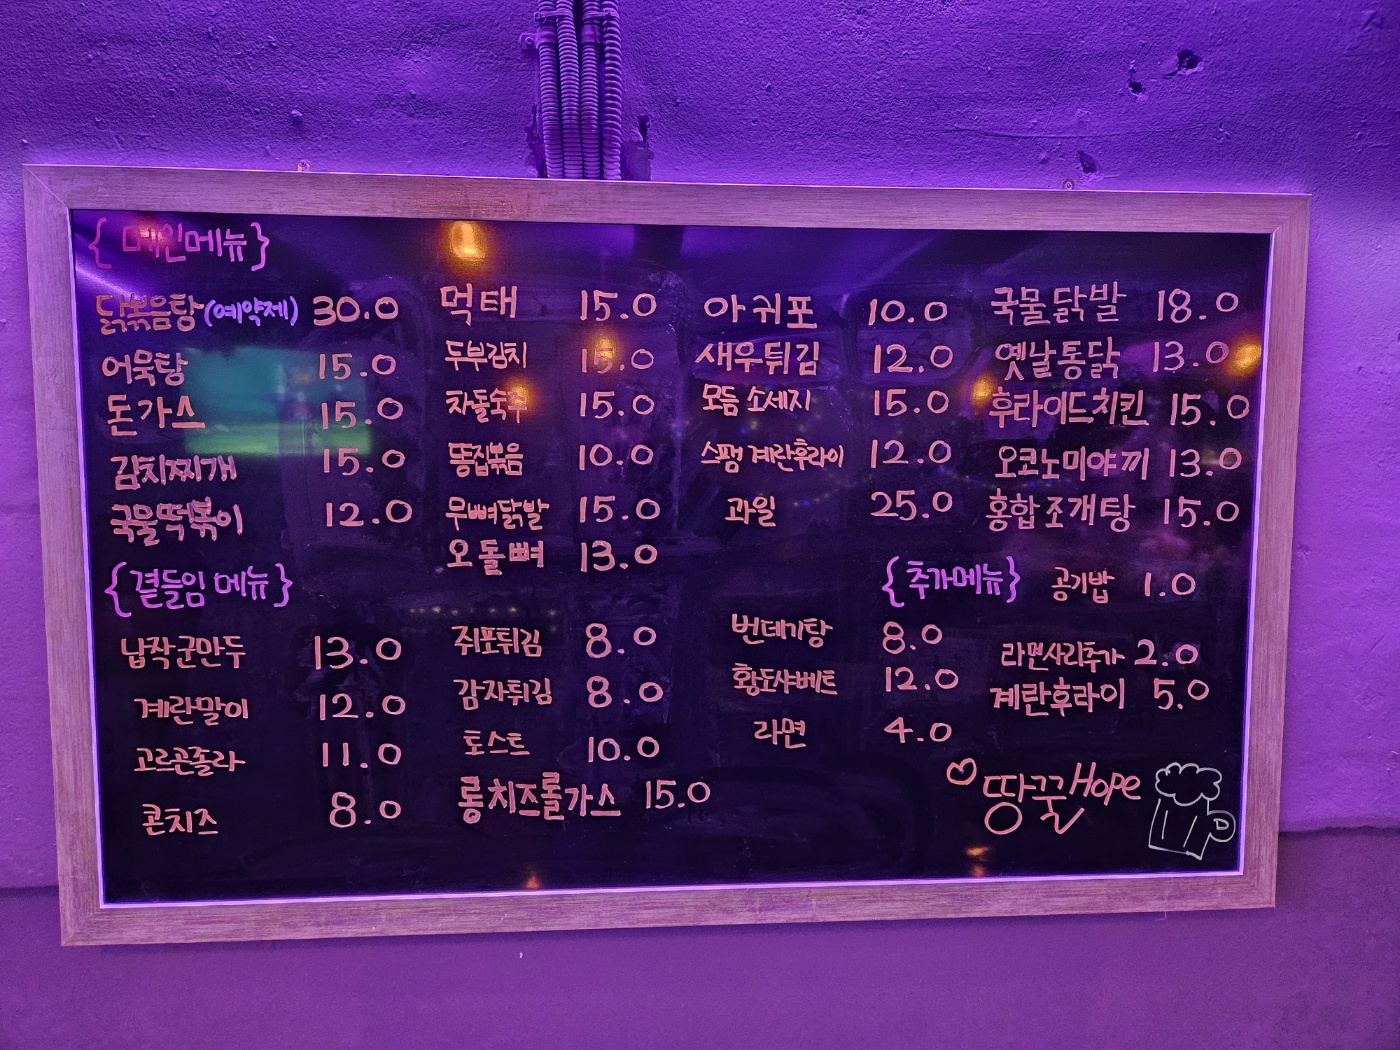 {메인메뉴}
닭볶음탕(예약제) 30.0
어묵탕 15.0
돈가스 15.0
김치찌개 15.0
국물떡볶이 12.0
먹태 15.0
두부김치 15.0
차돌숙주 15.0
똥집볶음 10.0
무뼈닭발 15.0
오돌뼈 13.0
아귀포 10.0
새우튀김 12.0
모듬소세지 15.0
스팸계란후라이 12.0
과일 25.0
국물닭발 18.0
옛날통닭 13.0
후라이드치킨 15.0
오코노미야끼 13.0
홍합조개탕 15.0
{곁들임 메뉴}
납작군만두 13.0
계란말이 12.0
고르곤졸라 11.0
콘치즈 8.0
쥐포튀김 8.0
감자튀김 8.0
토스트 10.0
롱치즈롤가스 15.0
번데기탕 8.0
황도샤베트 12.0
라면 4.0
{추가메뉴} 공기밥 1.0
라면사리추가 2.0
계란후라이 5.0
땅꿀Hope